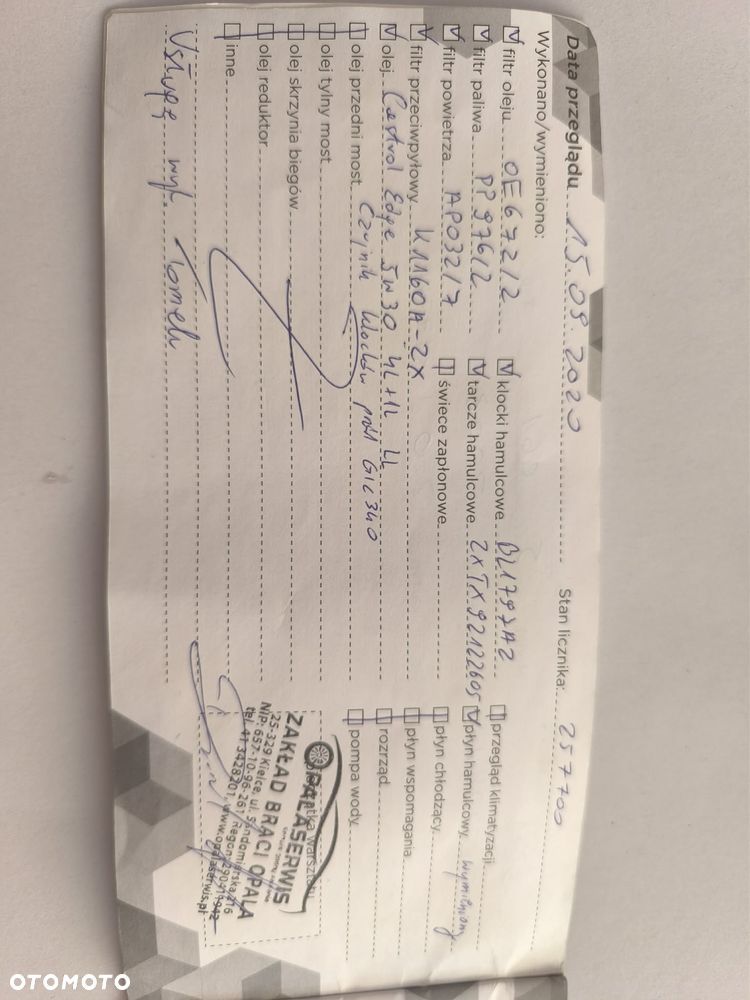 Data przeglądu 15.09.2020 Stan licznika: 257700
Wykonano/wymieniono:
filtr oleju OE672/2 klocki hamulcowe przegląd klimatyzacji
filtr paliwa PP976/2 tarcze hamulcowe 2XTX92122605 płyn hamulcowy wymieniony
filtr powietrza AP032/7 świece zapłonowe płyn chłodzący
filtr przeciwpyłowy K1160A-2X płyn wspomagania
olej Castrol Edge 5W30 4L+1L LL rozrząd
olej przedni most Czujnik klocków GIC340 pompa wody
olej tylny most
olej skrzynia biegów
olej reduktor
inne
Usługę wyk. Tomek
Pieczątka warsztatu
OPALASERWIS
ZAKŁAD BRACI OPALA
25-329 Kielce, ul. Sandomierska 216
NIP: 657-10-96-261 Regon
tel. 41 3428201, www.opalaserwis.pl
OTOMOTO